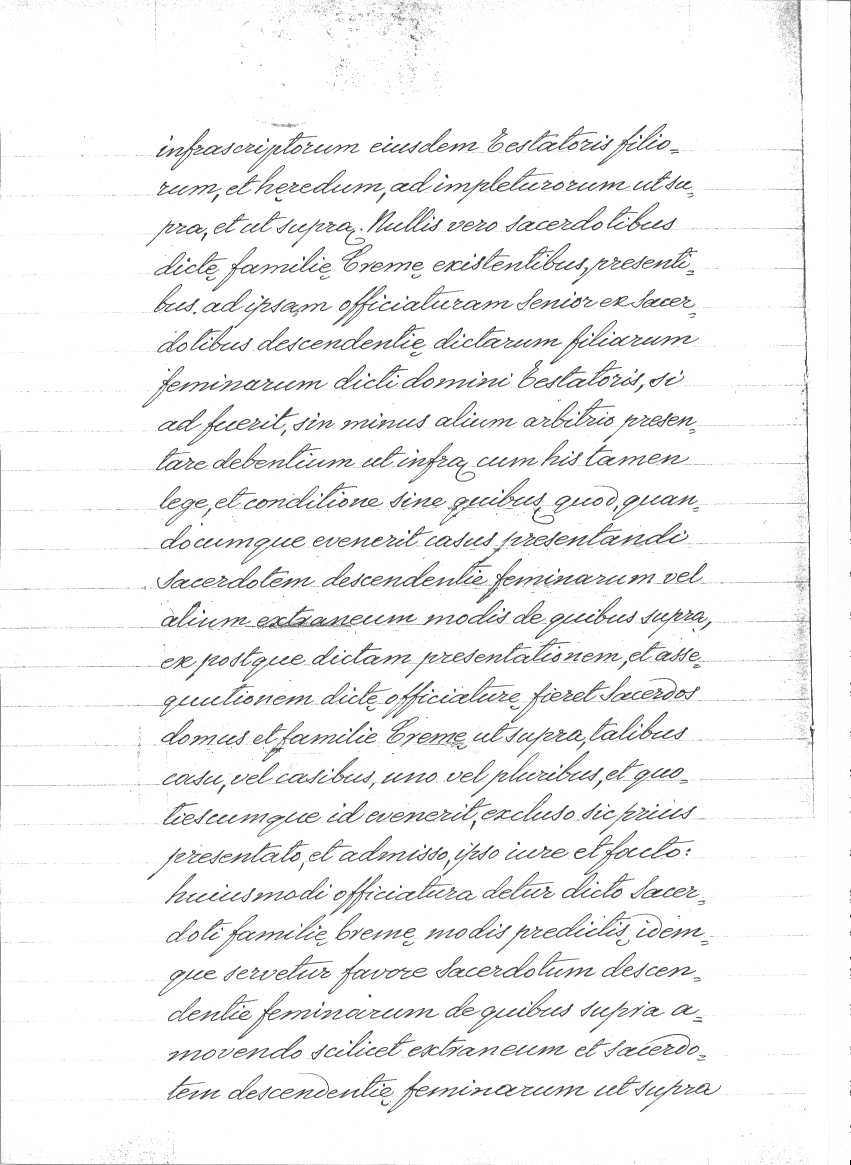 infrascriptorum eiusdem Testatoris filio=
rum, et hęredum, ad impleturorum ut su=
pra, et ut supra. Nullis vero sacerdotibus
dictę familię Cremę existentibus, presenti=
bus. ad ipsam officiaturam Senior ex Sacer=
dotibus descendentię dictarum filiarum
feminarum dicti domini Testatoris, si
ad fuerit, sin minus alium arbitrio presen=
tare debentium ut infra cum his tamen
lege, et conditione sine quibus, quod, quan=
documque evenerit casus presentandi
Sacerdotem descendentię feminarum vel
alium extraneum modis de quibus supra,
ex postque dictam presentationem, et asse=
quutionem dictę officiaturę fieret Sacerdos
domus et familie Cremę ut supra, talibus
casu, vel casibus, uno vel pluribus, et quo=
tiescumque id evenerit, excluso sic prius
presentato, et admisso, ipso iure et facto:
huiusmodi officiatura detur dicto Sacer=
doti familię Cremę modis predictis, idem=
que servetur favore Sacerdotum descen=
dentie feminarum de quibus supra a=
movendo scilicet extraneum et Sacerdo=
tem descendentię feminarum ut supra